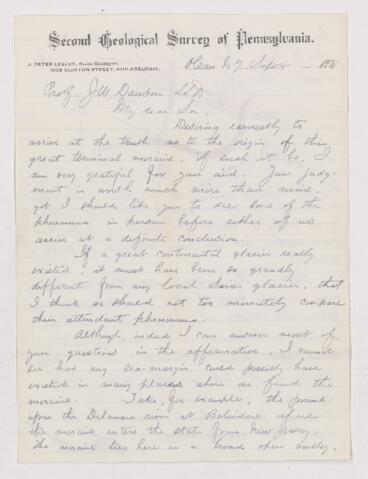 Second Geological Survey of Pennsylvania.
J. PETER LESLEY, State Geologist,
1008 CLINTON STREET, PHILADELPHIA.
Olean N Y Sept 4 188
Prof. J W. Dawson LLD
My dear Sir,
Desiring earnestly to
arrive at the truth as to the origin of this
great terminal moraine, if such it be, I
am very grateful for your aid. Your judg-
ment is worth much more than mine,
yet I should like you to see some of the
phenomena in person before either of us
arrive at a definite conclusion.
If a great continental glacier really
existed, it must have been so grandly
different from any local Swiss glacier, that
I think we should not too minutely compare
their attendant phenomena.
Although, indeed, I can answer most of
your questions in the affirmative, I cannot
see how any sea-margin could possibly have
existed in many places where we find the
moraine. Take, for example, the point
upon the Delaware river at Belvidere where
the moraine enters the state from New Jersey.
The moraine lies here in a broad open valley,